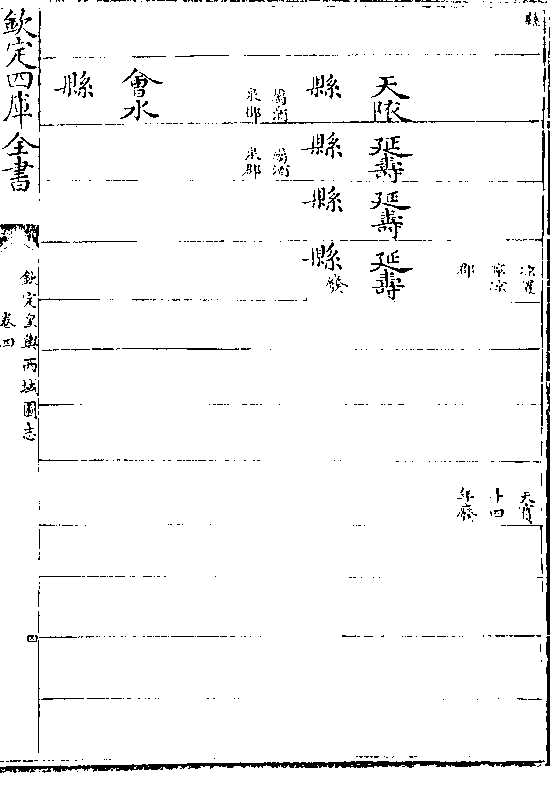 縣
改置
郡
天寶
十四
年廢
天䧇
延壽
延壽
延壽
縣
屬酒
泉郡
縣
屬酒
泉郡
縣
縣廢
會水
縣
欽定四庫全書
欽定皇輿西域圖志
卷四
四